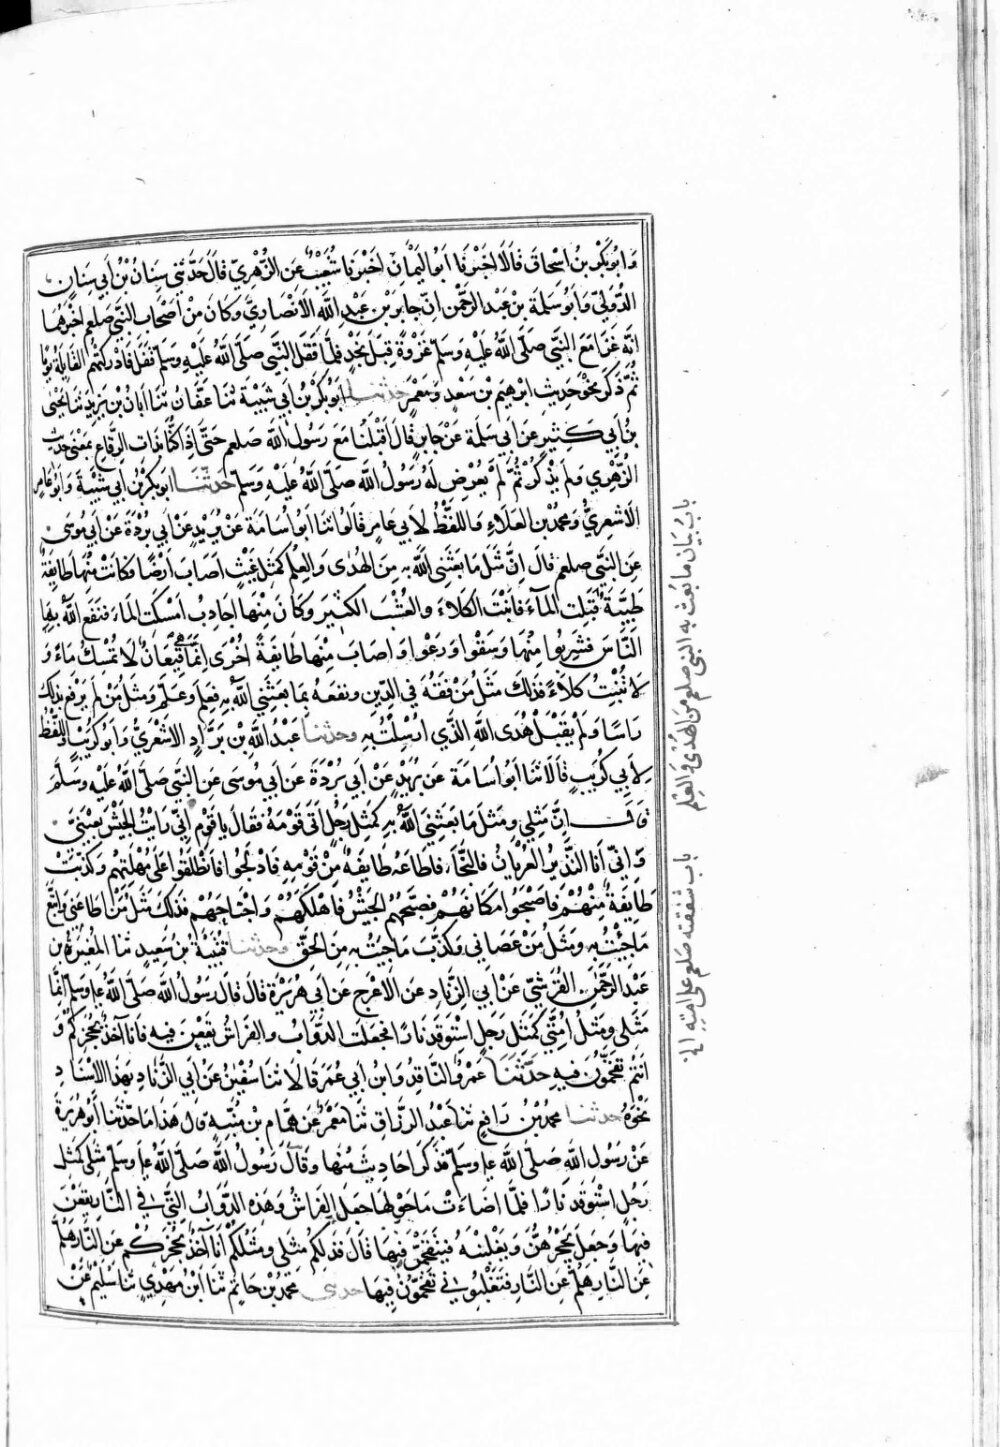 وَابُوبَكْرِ بْنُ اِسْحَاقَ قَالَا اَخْبَرَنَا اَبُو الْيَمَانِ اَخْبَرَنَا شُعَيْبٌ عَنِ الزُّهْرِيِّ قَالَ حَدَّثَنِي سِنَانُ بْنُ أَبِي سِنَانٍ
الدُّوَلِيُّ وَابُو سَلَمَةَ بْنُ عَبْدِ الرَّحْمٰنِ اَنَّ جَابِرَ بْنَ عَبْدِ اللّٰهِ الْاَنْصَارِيَّ وَكَانَ مِنْ اَصْحَابِ النَّبِيِّ صلعم اَخْبَرَهُمَا
اَنَّهُ غَزَا مَعَ النَّبِيِّ صَلَّى اللّٰهُ عَلَيْهِ وَسَلَّمَ غَزْوَةً قِبَلَ نَجْدٍ فَلَمَّا قَفَلَ النَّبِيُّ صَلَّى اللّٰهُ عَلَيْهِ وَسَلَّمَ قَفَلَ فَادْرَكَتْهُمُ الْقَايِلَةُ يَوْمًا
ثُمَّ ذَكَرَ نَحْوَ حَدِيثِ اِبْرٰهِيمَ بْنِ سَعْدٍ وَمَعْمَرٍ حدثنا اَبُوبَكْرِ بْنُ اَبِي شَيْبَةَ ثَنَا عَفَّانُ ثَنَا اَبَانُ بْنُ يَزِيدَ ثَنَا يَحْيَى
بْنُ اَبِي كَثِيرٍ عَنْ اَبِي سَلَمَةَ عَنْ جَابِرٍ قَالَ اَقْبَلْنَا مَعَ رَسُولِ اللّٰهِ صلعم حَتّٰى اِذَا كُنَّا بِذَاتِ الرِّقَاعِ بِمَعْنَى حَدِيثِ
الزُّهْرِي وَلَمْ يَذْكُرْ ثُمَّ لَمْ يَعْرِضْ لَهُ رَسُولُ اللّٰهِ صَلَّى اللّٰهُ عَلَيْهِ وَسَلَّمَ حَدَّثَنَا اَبُوبَكْرِ بْنُ اَبِي شَيْبَةَ وَابُو عَامِرٍ
الْاَشْعَرِيُّ وَمُحَمَّدُ بْنُ الْعَلَاءِ وَاللَّفْظُ لِاَبِي عَامِرٍ قَالُوا ثَنَا اَبُو اُسَامَةَ عَنْ بُرَيْدٍ عَنْ اَبِي بُرْدَةَ عَنْ اَبِي مُوسَى
عَنِ النَّبِيِّ صلعم قَالَ اِنَّ مَثَلَ مَا بَعَثَنِي اللّٰهُ بِهِ مِنَ الْهُدٰى وَالْعِلْمِ كَمَثَلِ غَيْثٍ اَصَابَ اَرْضًا فَكَانَتْ مِنْهَا طَايِفَةٌ
طَيِّبَةٌ قَبِلَتِ الْمَآءَ فَاَنْبَتَتِ الْكَلَاءَ وَالْعُشْبَ الْكَثِيرَ وَكَانَ مِنْهَا اَجَادِبُ اَمْسَكَتِ الْمَاءَ فَنَفَعَ اللّٰهُ بِهَا
النَّاسَ فَشَرِبُوا مِنْهَا وَسَقَوْا وَرَعَوْا وَاَصَابَ مِنْهَا طَايِفَةً اُخْرَى اِنَّمَا هِيَ قِيعَانٌ لَا تُمْسِكُ مَاءً وَ
لَا تُنْبِتُ كَلَاءً فَذٰلِكَ مَثَلُ مَنْ فَقُهَ فِي الدِّينِ وَنَفَعَهُ بِمَا بَعَثَنِي اللّٰهُ بِهِ فَعَلِمَ وَعَلَّمَ وَمَثَلُ مَنْ لَمْ يَرْفَعْ بِذٰلِكَ
رَاسًا وَلَمْ يَقْبَلْ هُدَى اللّٰهِ الَّذِي اُرْسِلْتُ بِهِ وحدثنا عَبْدُ اللّٰهِ بْنُ بَرَّادٍ الْاَشْعَرِيُّ وَابُو كُرَيْبٍ وَاللَّفْظُ
لِاَبِي كُرَيْبٍ قَالَا ثَنَا اَبُو اُسَامَةَ عَنْ بُرَيْدٍ عَنْ اَبِي بُرْدَةَ عَنْ اَبِي مُوسَى عَنِ النَّبِيِّ صَلَّى اللّٰهُ عَلَيْهِ وَسَلَّمَ
قَالَ اِنَّ مَثَلِي وَمَثَلَ مَا بَعَثَنِيَ اللّٰهُ بِهِ كَمَثَلِ رَجُلٍ اَتَى قَوْمَهُ فَقَالَ يَا قَوْمِ اِنِّي رَاَيْتُ الْجَيْشَ بِعَيْنَيَّ
وَاِنِّي اَنَا النَّذِيرُ الْعُرْيَانُ فَالنَّجَاءَ فَاَطَاعَهُ طَايِفَةٌ مِنْ قَوْمِهِ فَادْلَجُوا فَانْطَلَقُوا عَلَى مُهْلَتِهِمْ وَكَذَّبَتْ
طَايِفَةٌ مِنْهُمْ فَاَصْبَحُوا مَكَانَهُمْ فَصَبَّحَهُمُ الْجَيْشُ فَاَهْلَكَهُمْ وَاجْتَاحَهُمْ فَذٰلِكَ مَثَلُ مَنْ اَطَاعَنِي وَاتَّبَعَ
مَا جِئْتُ بِهِ وَمَثَلُ مَنْ عَصَانِي وَكَذَّبَ مَا جِئْتُ بِهِ مِنَ الْحَقِّ وحدثنا قُتَيْبَةُ بْنُ سَعِيدٍ ثَنَا الْمُغِيرَةُ بْنُ
عَبْدِ الرَّحْمٰنِ الْقُرَشِيُّ عَنْ اَبِي الزِّنَادِ عَنِ الْاَعْرَجِ عَنْ اَبِي هُرَيْرَةَ قَالَ قَالَ رَسُولُ اللّٰهِ صَلَّى اللّٰهُ علي وسلم اِنَّمَا
مَثَلِي وَمَثَلُ اُمَّتِي كَمَثَلِ رَجُلٍ اسْتَوْقَدَ نَارًا فَجَعَلَتِ الدَّوَابُّ وَالْفَرَاشُ يَقَعْنَ فِيهِ فَاَنَا آخِذٌ بِحُجَزِكُمْ وَ
اَنْتُمْ تَقَحَّمُونَ فِيهِ حَدَّثَنَا عَمْرٌو النَّاقِدُ وَابْنُ اَبِي عُمَرَ قَالَا ثَنَا سُفْيٰنُ عَنْ اَبِي الزِّنَادِ بِهٰذَا الْاِسْنَادِ
نَحْوَهُ حدثنا مُحَمَّدُ بْنُ رَافِعٍ ثَنَا عَبْدُ الرَّزَّاقِ ثَنَا مَعْمَرٌ عَنْ هَمَّامِ بْنِ مُنَبِّهٍ قَالَ هٰذَا مَا حَدَّثَنَا اَبُو هُرَيْرَةَ
عَنْ رَسُولِ اللّٰهِ صَلَّى اللّٰهُ علي وسلم فَذَكَرَ اَحَادِيثَ مِنْهَا وَقَالَ رَسُولُ اللّٰهِ صَلَّى اللّٰهُ علي وسلم مَثَلِي كَمَثَلِ
رَجُلٍ اسْتَوْقَدَ نَارًا فَلَمَّا اَضَاءَتْ مَا حَوْلَهَا جَعَلَ الْفَرَاشُ وَهٰذِهِ الدَّوَابُّ الَّتِي فِي النَّارِ يَقَعْنَ
فِيهَا وَجَعَلَ يَحْجُزُهُنَّ وَيَغْلِبْنَهُ فَيَتَقَحَّمْنَ فِيهَا قَالَ فَذٰلِكُمْ مَثَلِي وَمَثَلُكُمْ اَنَا آخِذٌ بِحُجَزِكُمْ عَنِ النَّارِ هَلُمَّ
عَنِ النَّارِ هَلُمَّ عَنِ النَّارِ فَتَغْلِبُونِي تَقَحَّمُونَ فِيهَا حدثني مُحَمَّدُ بْنُ حَاتِمٍ ثَنَا ابْنُ مَهْدِيٍّ ثَنَا سَلِيمٌ عَنْ
باب بيان ما بعث به النبي صلعم من الهدى و العلم
باب شفقته صلعم على امته